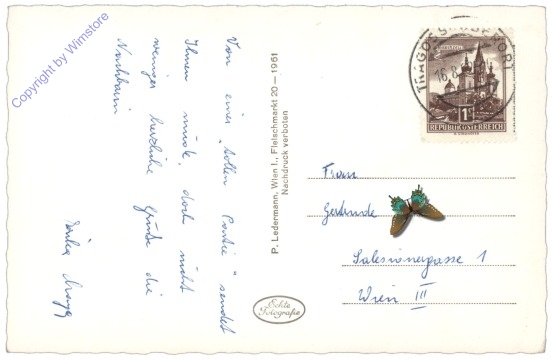 Copyright by Wimstore
Von einer "tollen Partie" sendet
Ihnen müde, doch nicht
weniger herzliche Grüße die
Nachbarin
P. Ledermann, Wien I., Fleischmarkt 20—1961
Nachdruck verboten
16.8.
1S
REPUBLIK ÖSTERREICH
Frau
Gertrude
Salesianergasse 1
Wien III
Echte
Fotografie